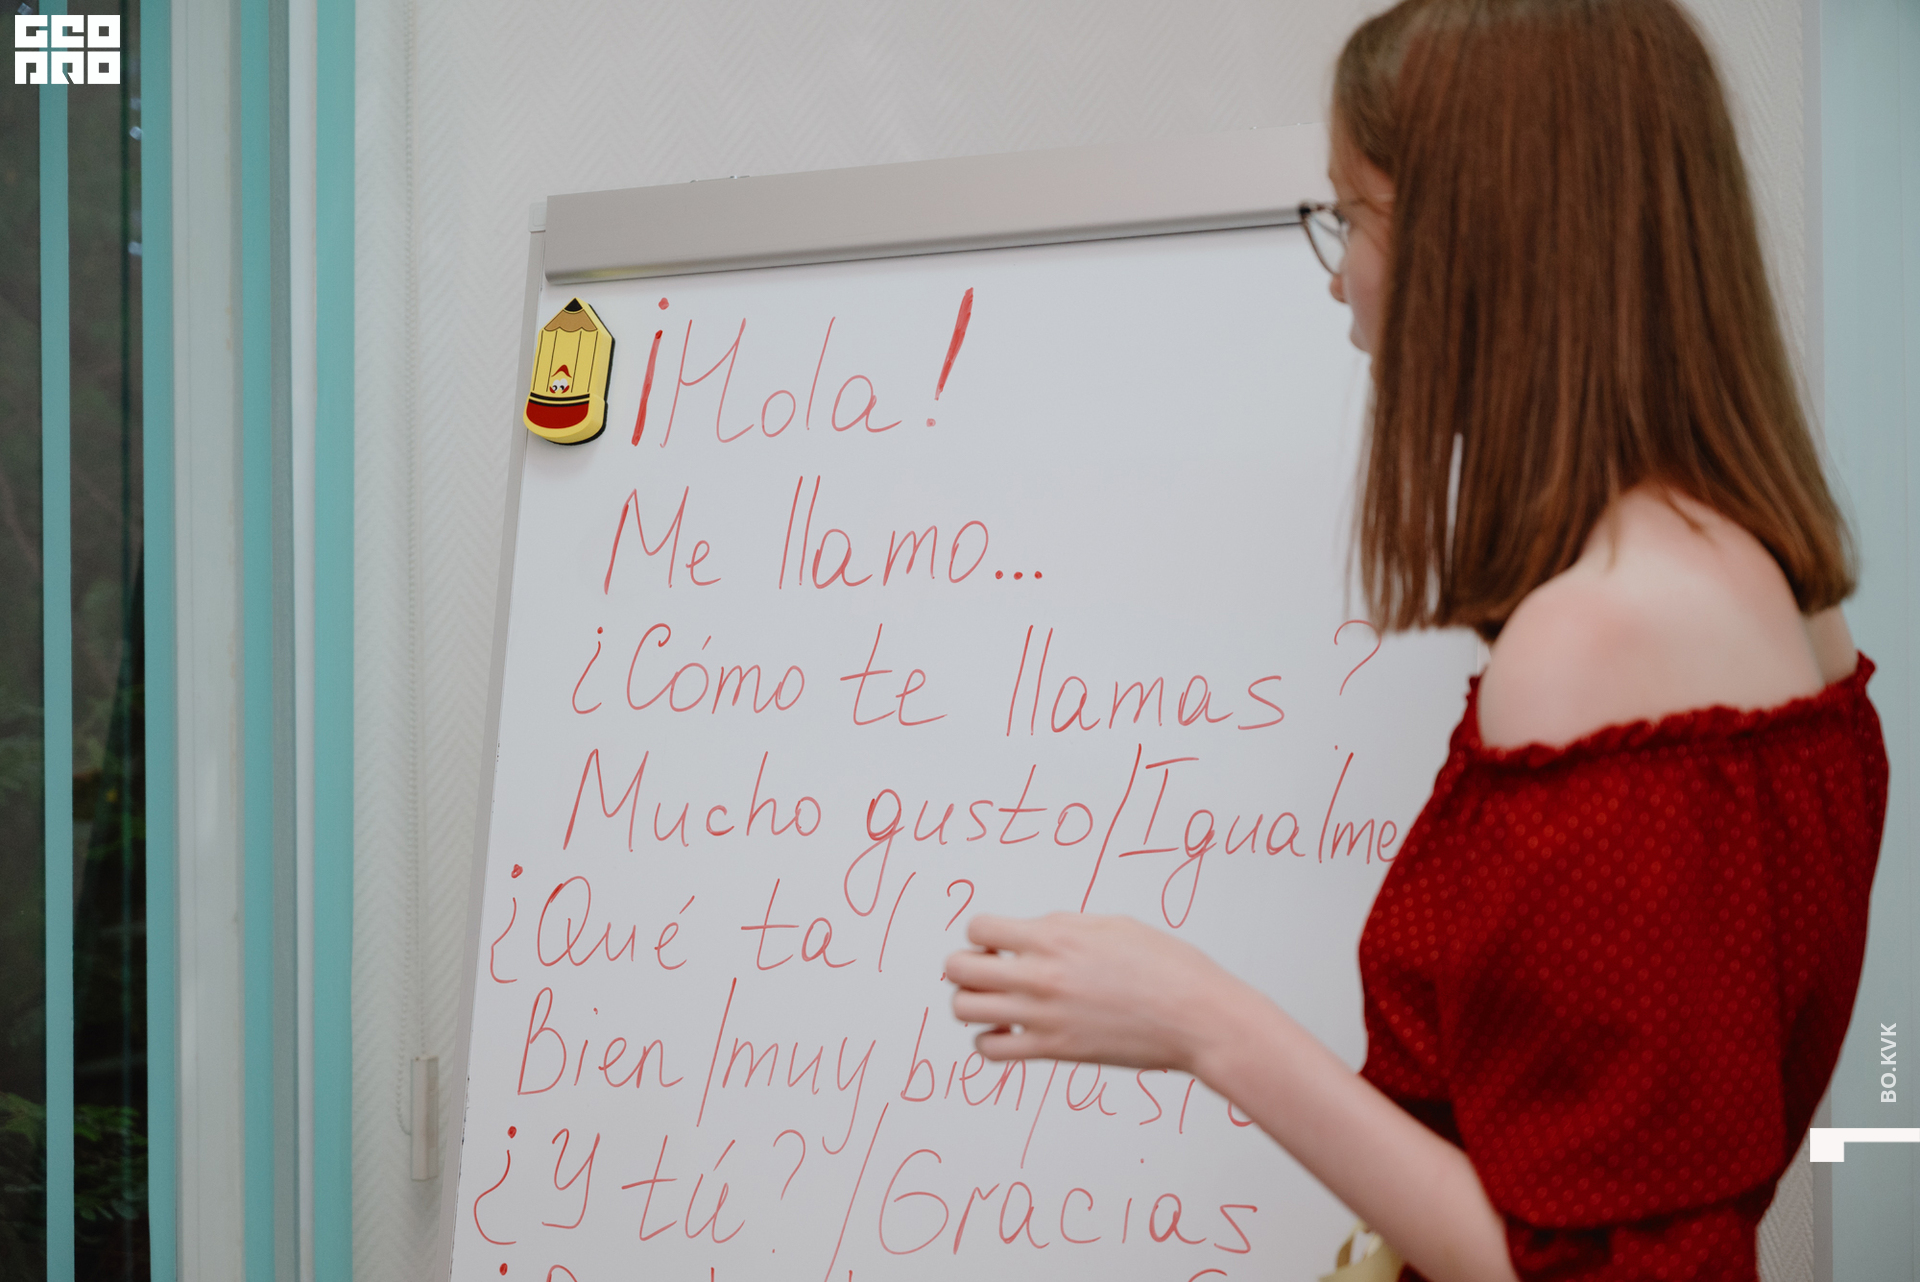 GEO
PRO
¡Hola!
Me llamo...
¿Cómo te llamas?
Mucho gusto/Igualme
¿Qué tal?
Bien/muy bien/así
¿Y tú?/Gracias
BO.KVK